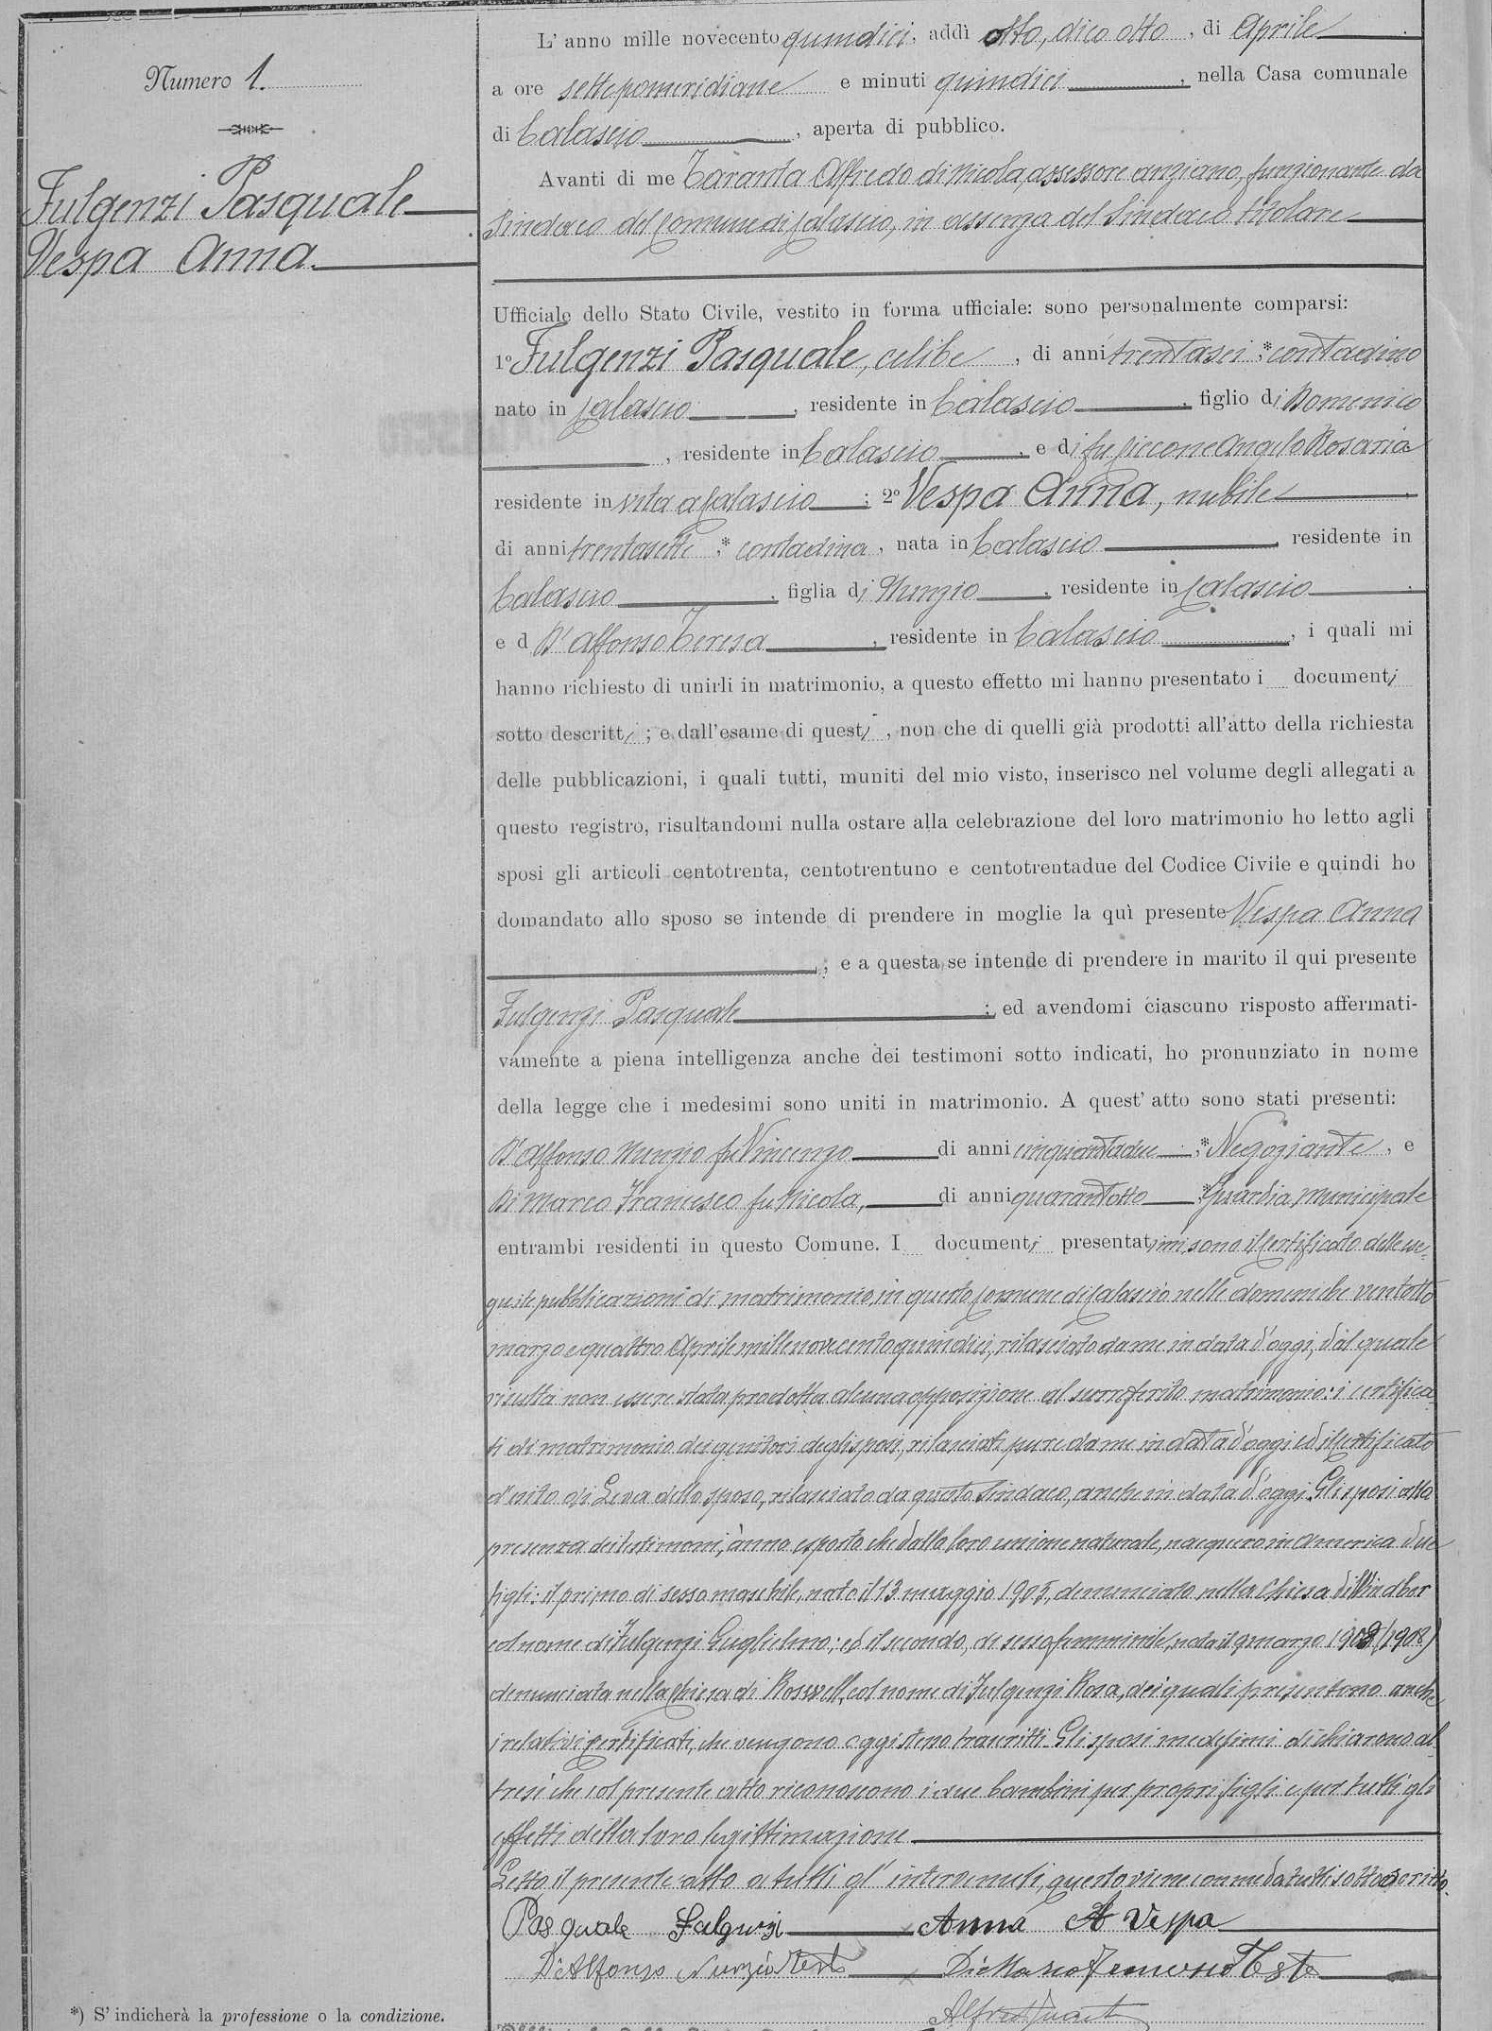 Numero 1.
Fulgenzi Pasquale
Vespa Anna.
L' anno mille novecento quindici, addì otto, dico otto, di Aprile
a ore sette pomeridiane e minuti quindici, nella Casa comunale
di Calascio, aperta di pubblico.
Avanti di me Taranta Alfredo di Nicola, assessore anziano, funzionante da
Sindaco del Comune di Calascio, in assenza del Sindaco titolare
Ufficiale dello Stato Civile, vestito in forma ufficiale: sono personalmente comparsi:
1º Fulgenzi Pasquale, celibe, di anni trentasei;* contadino
nato in Calascio, residente in Calascio, figlio di Domenico
, residente in Calascio, e di fu Ciccone Angela Rosaria
residente in vita a Calascio; 2º Vespa Anna, nubile,
di anni trentasette;* contadina, nata in Calascio, residente in
Calascio, figlia di Nunzio, residente in Calascio,
e d D'Alfonso Teresa, residente in Calascio, i quali mi
hanno richiesto di unirli in matrimonio, a questo effetto mi hanno presentato i documenti
sotto descritti; e dall'esame di questi, non che di quelli già prodotti all'atto della richiesta
delle pubblicazioni, i quali tutti, muniti del mio visto, inserisco nel volume degli allegati a
questo registro, risultandomi nulla ostare alla celebrazione del loro matrimonio ho letto agli
sposi gli articoli centotrenta, centotrentuno e centotrentadue del Codice Civile e quindi ho
domandato allo sposo se intende di prendere in moglie la quì presente Vespa Anna
; e a questa se intende di prendere in marito il qui presente
Fulgenzi Pasquale; ed avendomi ciascuno risposto affermati-
vamente a piena intelligenza anche dei testimoni sotto indicati, ho pronunziato in nome
della legge che i medesimi sono uniti in matrimonio. A quest' atto sono stati presenti:
D'Alfonso Nunzio fu Vincenzo di anni cinquantadue;* Negoziante, e
Di Marco Francesco fu Nicola, di anni quarantotto;* Guardia Municipale
entrambi residenti in questo Comune. I documenti presentatimi sono il certificato delle ese-
guite pubblicazioni di matrimonio in questo Comune di Calascio nelle domeniche ventotto
marzo e quattro Aprile millenovecentoquindici, rilasciato da me in data d'oggi, dal quale
risulta non essere stata prodotta alcuna opposizione al surriferito matrimonio: i certifica-
ti di matrimonio dei genitori degli sposi, rilasciati pure da me in data d'oggi ed il certificato
d'esito di Leva dello sposo, rilasciato da questo Sindaco, anche in data d'oggi. Gli sposi alla
presenza dei testimoni, ànno esposto che dalla loro unione naturale, nacquero in America due
figli: il primo di sesso maschile, nato il 13 maggio 1905, denunciato nella Chiesa di Windber
col nome di Fulgenzi Guglielmo; ed il secondo, di sesso femminile, nata il 9 marzo 1908 (1908)
denunciata nella Chiesa di Rosvell, col nome di Fulgenzi Rosa, dei quali presentono anche
i relativi certificati, che vengono oggi stesso trascritti. Gli sposi medesimi dichiarono al-
tresì che col presente atto riconoscono i due bambini per propri figli e per tutti gli
effetti della loro legittimazione
Letto il presente atto a tutti gl' intervenuti, questo viene con me da tutti sottoscritto.
Pasquale Fulgenzi Anna A Vespa
D'Alfonso Nunzio Teste Di Marco Francesco Teste
*) S' indicherà la professione o la condizione.